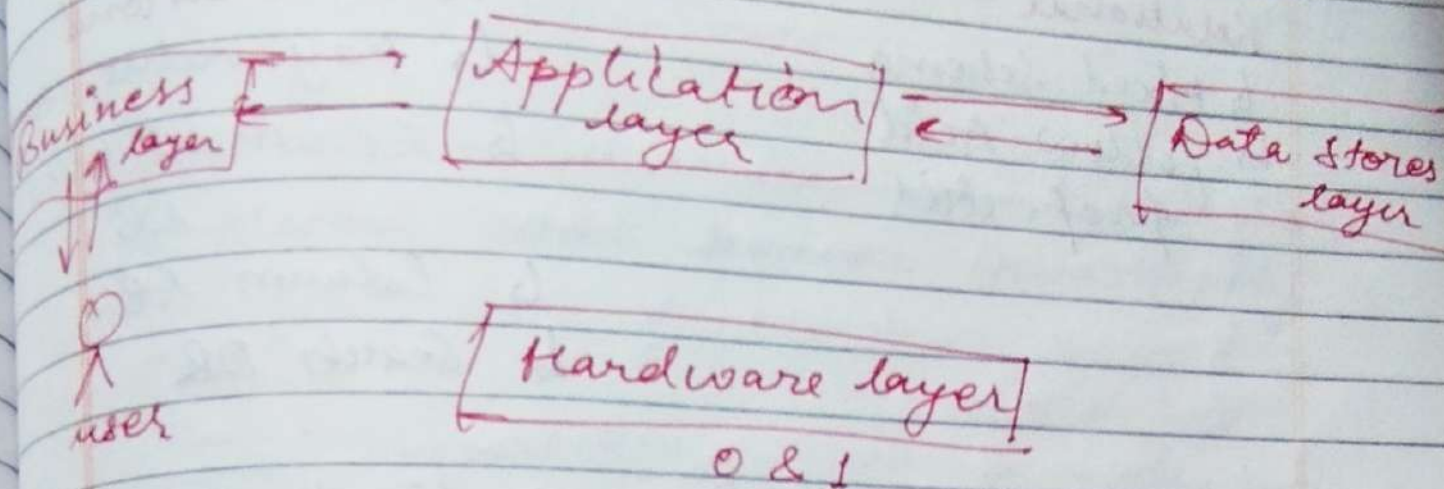 Business
layer
Application
layer
Data Stores
layer
user
Hardware layer
0 & 1